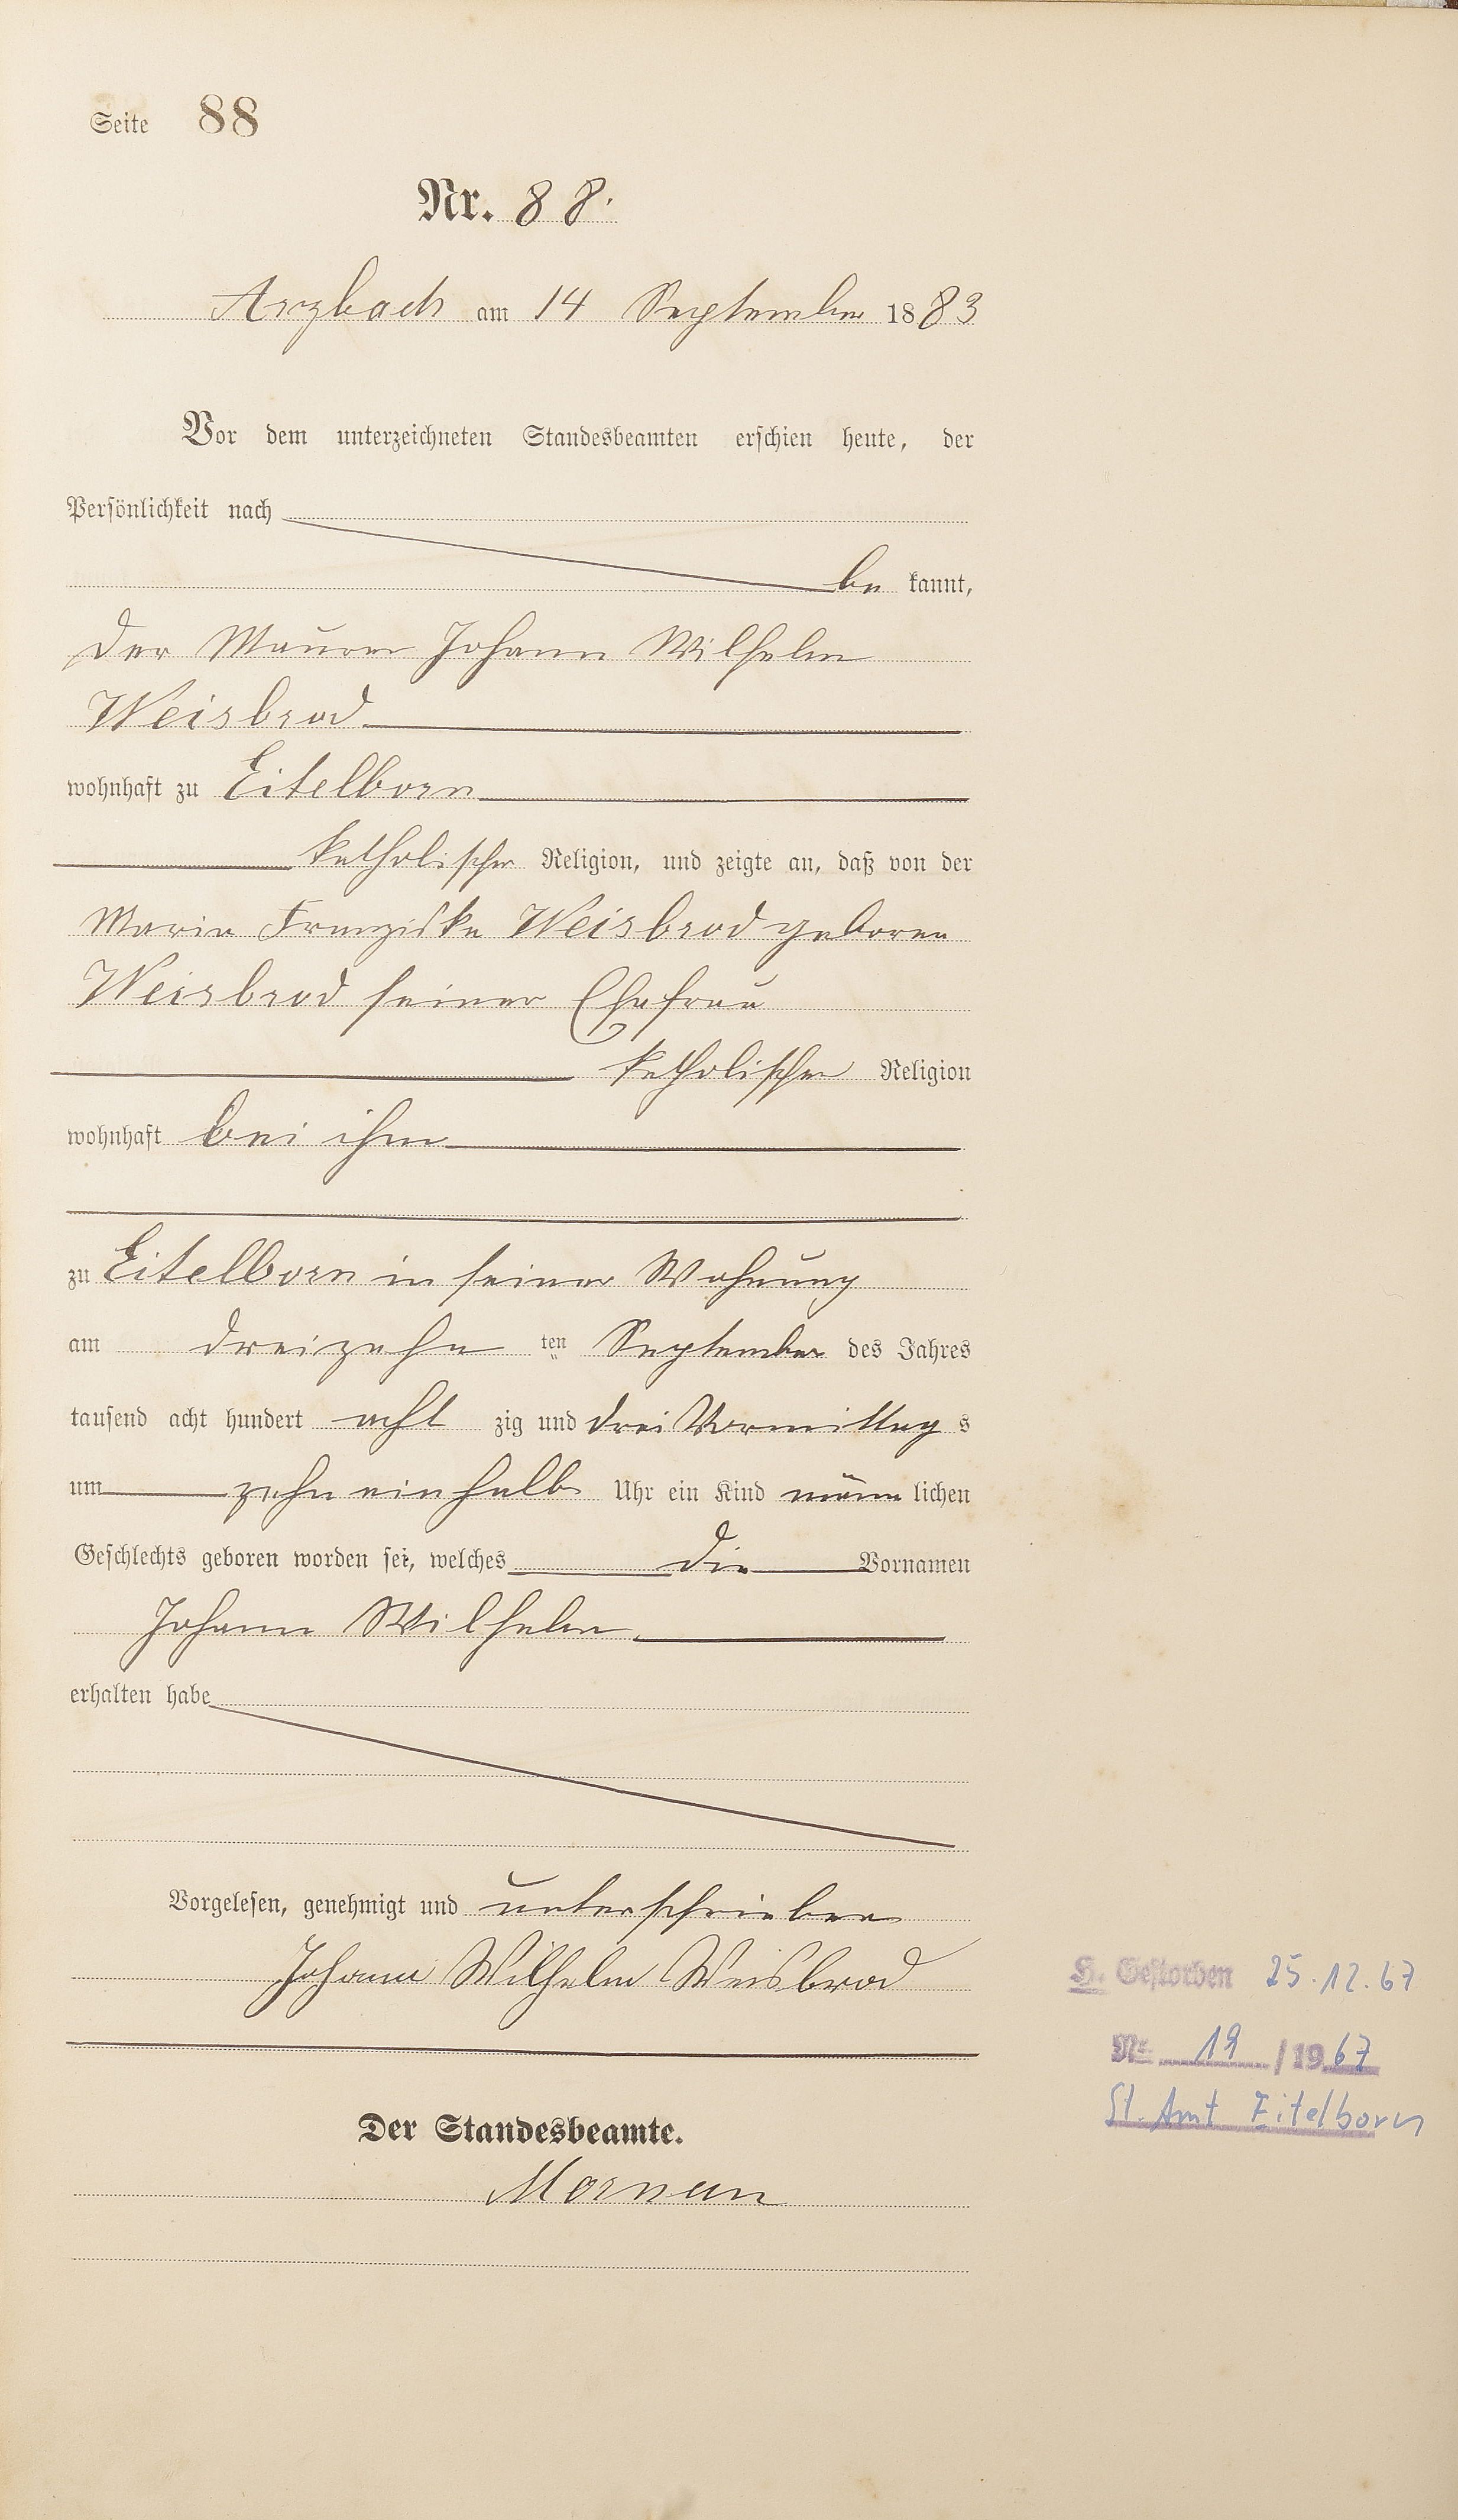 Seite 88
Nr. 88.
Arzbach am 14 September 1883
Vor dem unterzeichneten Standesbeamten erschien heute, der
Persönlichkeit nach
be kannt,
der Maurer Johann Wilhelm
Weisbrod
wohnhaft zu Eitelborn
katholischer Religion, und zeigte an, daß von der
Maria Franziska Weisbrod geboren
Weisbrod seiner Ehefrau
katholischer Religion
wohnhaft bei ihm
zu Eitelborn in seiner Wohnung
am dreizehn ten September des Jahres
tausend acht hundert acht zig und drei Vormittag s
um zehn einhalb Uhr ein Kind männ lichen
Geschlechts geboren worden sei, welches die Vornamen
Johann Wilhelm
erhalten habe
Vorgelesen, genehmigt und unterschrieben
Johann Wilhelm Weisbrod
Der Standesbeamte.
H. Gestorben 25.12.67
Nr. 19 / 1967
St. Amt Eitelborn